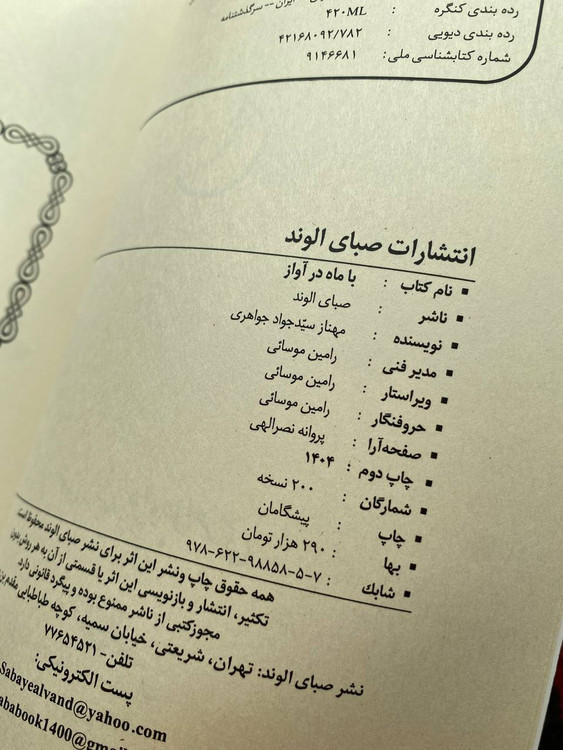 ایران -- سرگذشتنامه
رده بندی کنگره : ۴۲۰ML
رده بندی دیویی : ۴۲۱۶۸۰۹۲/۷۸۲
شماره کتابشناسی ملی: ۹۱۴۶۶۸۱
انتشارات صبای الوند
▪ نام کتاب : با ماه در آواز
▪ ناشر : صبای الوند
▪ نویسنده : مهناز سیّدجواد جواهری
▪ مدیر فنی : رامین موسائی
▪ ویراستار : رامین موسائی
▪ حروفنگار : رامین موسائی
▪ صفحه‌آرا : پروانه نصرالهی
▪ چاپ دوم : ۱۴۰۴
▪ شمارگان : ۲۰۰ نسخه
▪ چاپ : پیشگامان
▪ بها : ۲۹۰ هزار تومان
▪ شابك : ۷-۵-۹۸۸۵۸-۶۲۲-۹۷۸
همه حقوق چاپ ونشر این اثر برای نشر صبای الوند محفوظ است.
تکثیر، انتشار و بازنویسی این اثر یا قسمتی از آن به هر روش بدون
مجوزکتبی از ناشر ممنوع بوده و پیگرد قانونی دارد.
نشر صبای الوند: تهران، شریعتی، خیابان سمیه، کوچه طباطبایی مقدم
تلفن- ۷۷۶۵۴۵۲۱
پست الکترونیکی:
Sabayealvand@yahoo.com
ababook1400@gmai